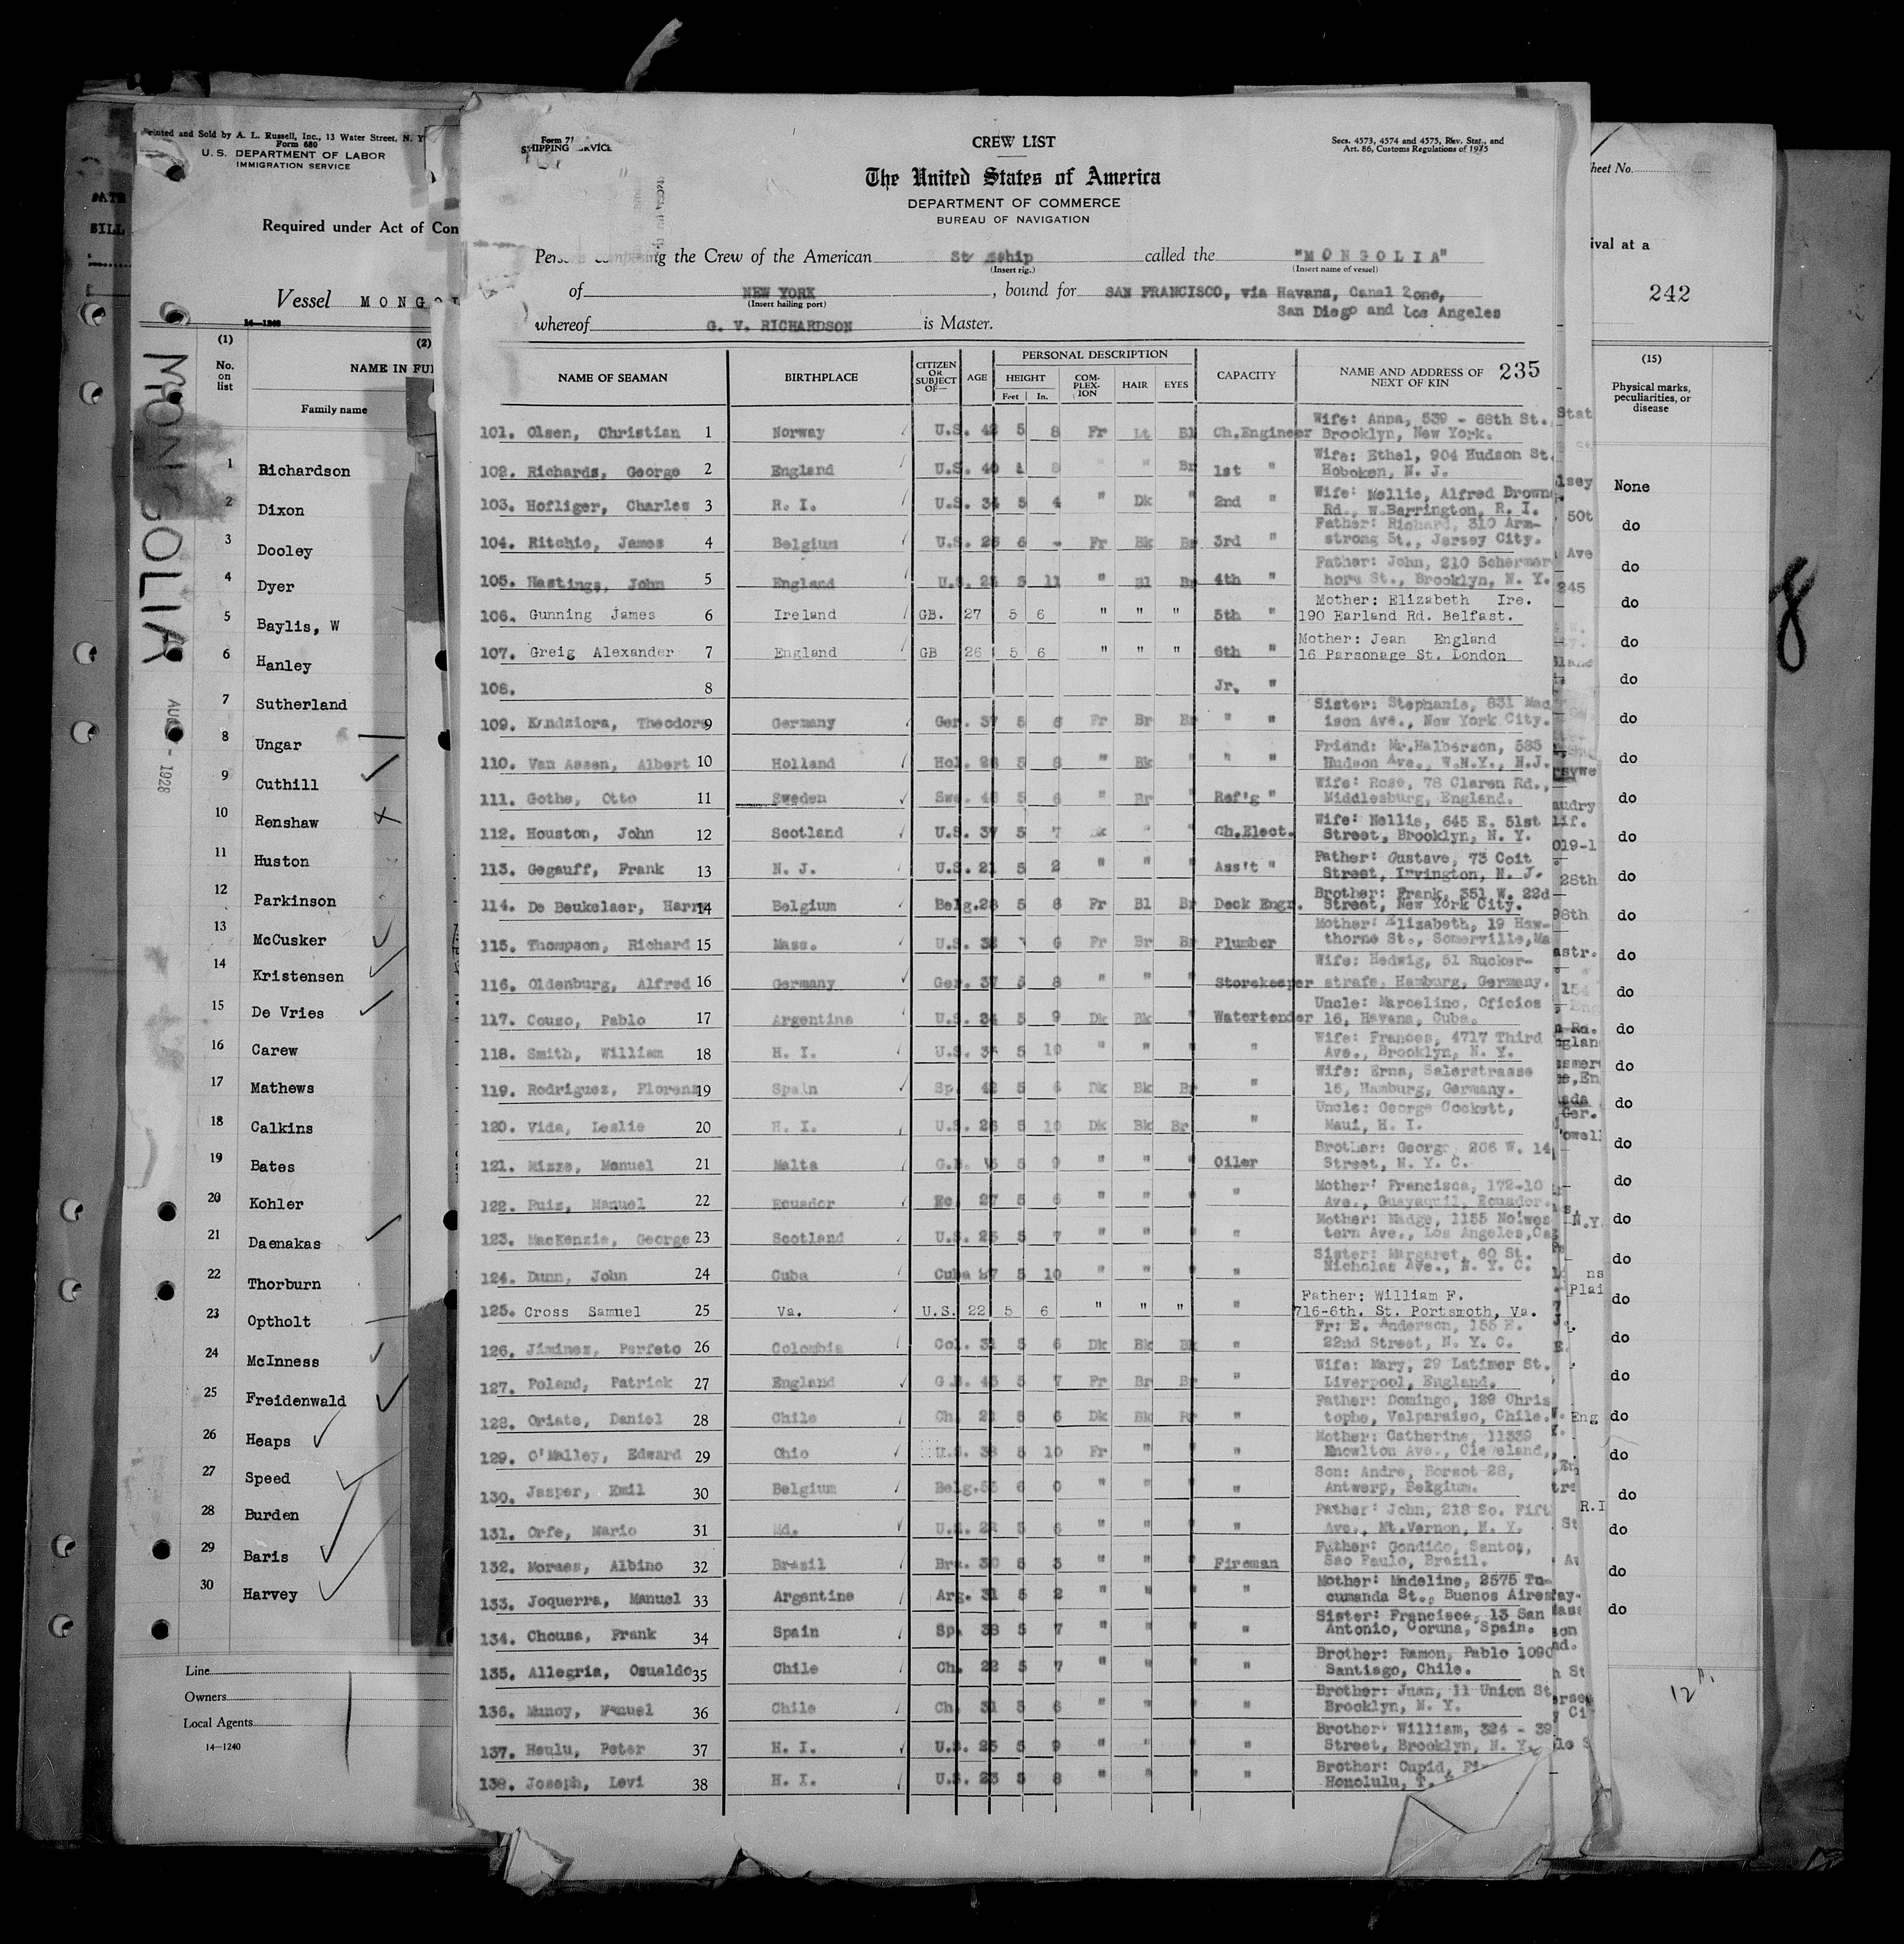 Printed and Sold by A. L. Russell, Inc., 13 Water Street, N. Y
Form 680
U. S. DEPARTMENT OF LABOR
IMMIGRATION SERVICE
Required under Act of Con
Vessel MONGO
14—1240
(1)
(2)
No. on list
NAME IN FUL
Family name
1 Richardson
2 Dixon
3 Dooley
4 Dyer
5 Baylis, W
6 Hanley
7 Sutherland
8 Ungar
9 Cuthill
10 Renshaw
11 Huston
12 Parkinson
13 McCusker
14 Kristensen
15 De Vries
16 Carew
17 Mathews
18 Calkins
19 Bates
20 Kohler
21 Daenakas
22 Thorburn
23 Optholt
24 McInness
25 Freidenwald
26 Heaps
27 Speed
28 Burden
29 Baris
30 Harvey
Line
Owners
Local Agents
14—1240
MONGOLIA
AUG - 1928
Form 71
SHIPPING SERVICE
CREW LIST
Secs. 4573, 4574 and 4575, Rev. Stat., and
Art. 86, Customs Regulations of 1915
The United States of America
DEPARTMENT OF COMMERCE
BUREAU OF NAVIGATION
the Crew of the American called the "MONGOLIA"
(Insert rig.) (Insert name of vessel)
of NEW YORK, bound for SAN FRANCISCO, via Havana, Canal Zone,
(Insert hailing port) San Diego and Los Angeles
whereof G. V. RICHARDSON is Master.
NAME OF SEAMAN BIRTHPLACE CITIZEN OR SUBJECT OF— AGE PERSONAL DESCRIPTION HEIGHT Feet In. COMPLEXION HAIR EYES CAPACITY NAME AND ADDRESS OF NEXT OF KIN 235
101. Olsen, Christian 1 Norway U.S. 42 5 8 Fr Lt Bl Ch.Engineer Wife: Anna, 539 - 68th St.,
Brooklyn, New York.
102. Richards, George 2 England U.S. 40 8 " " Br 1st " Wife: Ethel, 904 Hudson St.
Hoboken, N. J.
103. Hofliger, Charles 3 R. I. U.S. 34 5 4 " Dk " 2nd " Wife: Nellie, Alfred Drowne
Rd., W.Barrington, R. I.
104. Ritchie, James 4 Belgium U.S. 6 - Fr Bk Br 3rd " Father: Richard, 310 Arm-
strong St., Jersey City.
105. Hastings, John 5 England U.S. 5 11 " Bl Br 4th " Father: John, 210 Schermer
horn St., Brooklyn, N. Y.
106. Gunning James 6 Ireland GB. 27 5 6 " " " 5th " Mother: Elizabeth Ire.
190 Earland Rd. Belfast.
107. Greig Alexander 7 England GB 26 5 6 " " " 6th " Mother: Jean England
16 Parsonage St. London
108. 8 Jr. "
109. Kandziora, Theodore 9 Germany Ger. 37 5 6 Fr Br Br " " Sister: Stephanie, 831 Mad
ison Ave., New York City.
110. Van Assen, Albert 10 Holland Hol. 28 5 8 " Bk " " Friend: Mr.Halberson, 585
Hudson Ave., W.N.Y., N.J.
111. Gothe, Otto 11 Sweden Swe. 5 6 " Br " Ref'g " Wife: Rose, 78 Claren Rd.,
Middlesburg, England.
112. Houston, John 12 Scotland U.S. 37 5 7 Dk " " Ch.Elect. Wife: Nellie, 645 E. 51st
Street, Brooklyn, N. Y.
113. Gegauff, Frank 13 N. J. U.S. 21 5 2 " " " Ass't " Father: Gustave, 73 Coit
Street, Irvington, N. J.
114. De Beukelaer, Harry 14 Belgium Belg.28 5 8 Fr Bl Br Deck Engr. Brother: Frank, 351 W. 22d
Street, New York City.
115. Thompson, Richard 15 Mass. U.S. 38 6 Fr Br Br Plumber Mother: Elizabeth, 19 Haw-
thorne St., Somerville,Ma
116. Oldenburg, Alfred 16 Germany Ger. 37 5 8 " " " Storekeeper Wife: Hedwig, 51 Rucker-
strafe, Hamburg, Germany.
117. Couso, Pablo 17 Argentine U.S. 34 5 9 Dk Bk " Watertender Uncle: Marcelino, Oficios
16, Havana, Cuba.
118. Smith, William 18 H. I. U.S. 5 10 " " " " Wife: Frances, 4717 Third
Ave., Brooklyn, N. Y.
119. Rodriguez, Florenz 19 Spain Sp. 42 5 6 Dk Bk Br " Wife: Erna, Salerstrasse
16, Hamburg, Germany.
120. Vida, Leslie 20 H. I. U.S. 26 5 10 Dk Bk Br " Uncle: George Cockett,
Maui, H. I.
121. Mizze, Manuel 21 Malta G.B. 5 9 " " " Oiler Brother: George, 206 W. 14
Street, N. Y. C.
122. Ruiz, Manuel 22 Ecuador Ec. 27 5 6 " " " " Mother: Francisca, 172-10
Ave., Guayaquil, Ecuador.
123. MacKenzie, George 23 Scotland U.S. 25 5 7 " " " " Mother: Madge, 1155 No.wes
tern Ave., Los Angeles,Ca
124. Dunn, John 24 Cuba Cuba 27 5 10 " " " " Sister: Margaret, 60 St.
Nicholas Ave., N. Y. C.
125. Cross Samuel 25 Va. U.S. 22 5 6 " " " " Father: William F.
716-6th. St. Portsmoth, Va.
126. Jiminez, Perfeto 26 Colombia Col. 31 5 6 Dk Bk Bk " Fr: E. Anderson, 155 E.
22nd Street, N. Y. C.
127. Poland, Patrick 27 England G.B. 45 5 7 Fr Br Br " Wife: Mary, 29 Latimer St.
Liverpool, England.
128. Oriate, Daniel 28 Chile Ch. 22 5 6 Dk Bk Br " Father: Domingo, 129 Chris
tophe, Valparaiso, Chile.
129. O'Malley, Edward 29 Ohio U.S. 38 5 10 Fr " " Mother: Catherine, 11339
Knowlton Ave., Cleveland,
130. Jasper, Emil 30 Belgium Belg.55 6 0 " " " Son: Andre, Borsot 28,
Antwerp, Bekgium.
131. Orfe, Mario 31 Md. U.S. 22 5 6 " " " " Father: John, 218 So. Fift
Ave., Mt.Vernon, N. Y.
132. Moraes, Albino 32 Brazil Bra. 30 5 3 " " " Fireman Father: Gondido, Santos,
Sao Paulo, Brazil.
133. Joquerra, Manuel 33 Argentine Arg. 31 5 2 " " " " Mother: Madeline, 2575 Tu-
cumanda St., Buenos Aires
134. Chousa, Frank 34 Spain Sp. 38 5 7 " " " " Sister: Francisca, 13 San
Antonio, Coruna, Spain.
135. Allegria, Osualdo 35 Chile Ch. 22 5 7 " " " " Brother: Ramon, Pablo 1090
Santiago, Chile.
136. Munoy, Manuel 36 Chile Ch. 31 5 6 " " " " Brother: Juan, 11 Union St
Brooklyn, N. Y.
137. Heulu, Peter 37 H. I. U.S. 25 5 9 " " " " Brother William, 324 - 39
Street, Brooklyn, N. Y.
138. Joseph, Levi 38 H. I. U.S. 23 5 8 " " " " Brother: Cupid,
Honolulu, T.
heet No.
ival at a
242
(15)
Physical marks, peculiarities, or disease
None
do
do
do
do
do
do
do
do
do
do
do
do
do
do
do
do
do
do
do
do
do
do
do
do
do
do
do
do
do
8